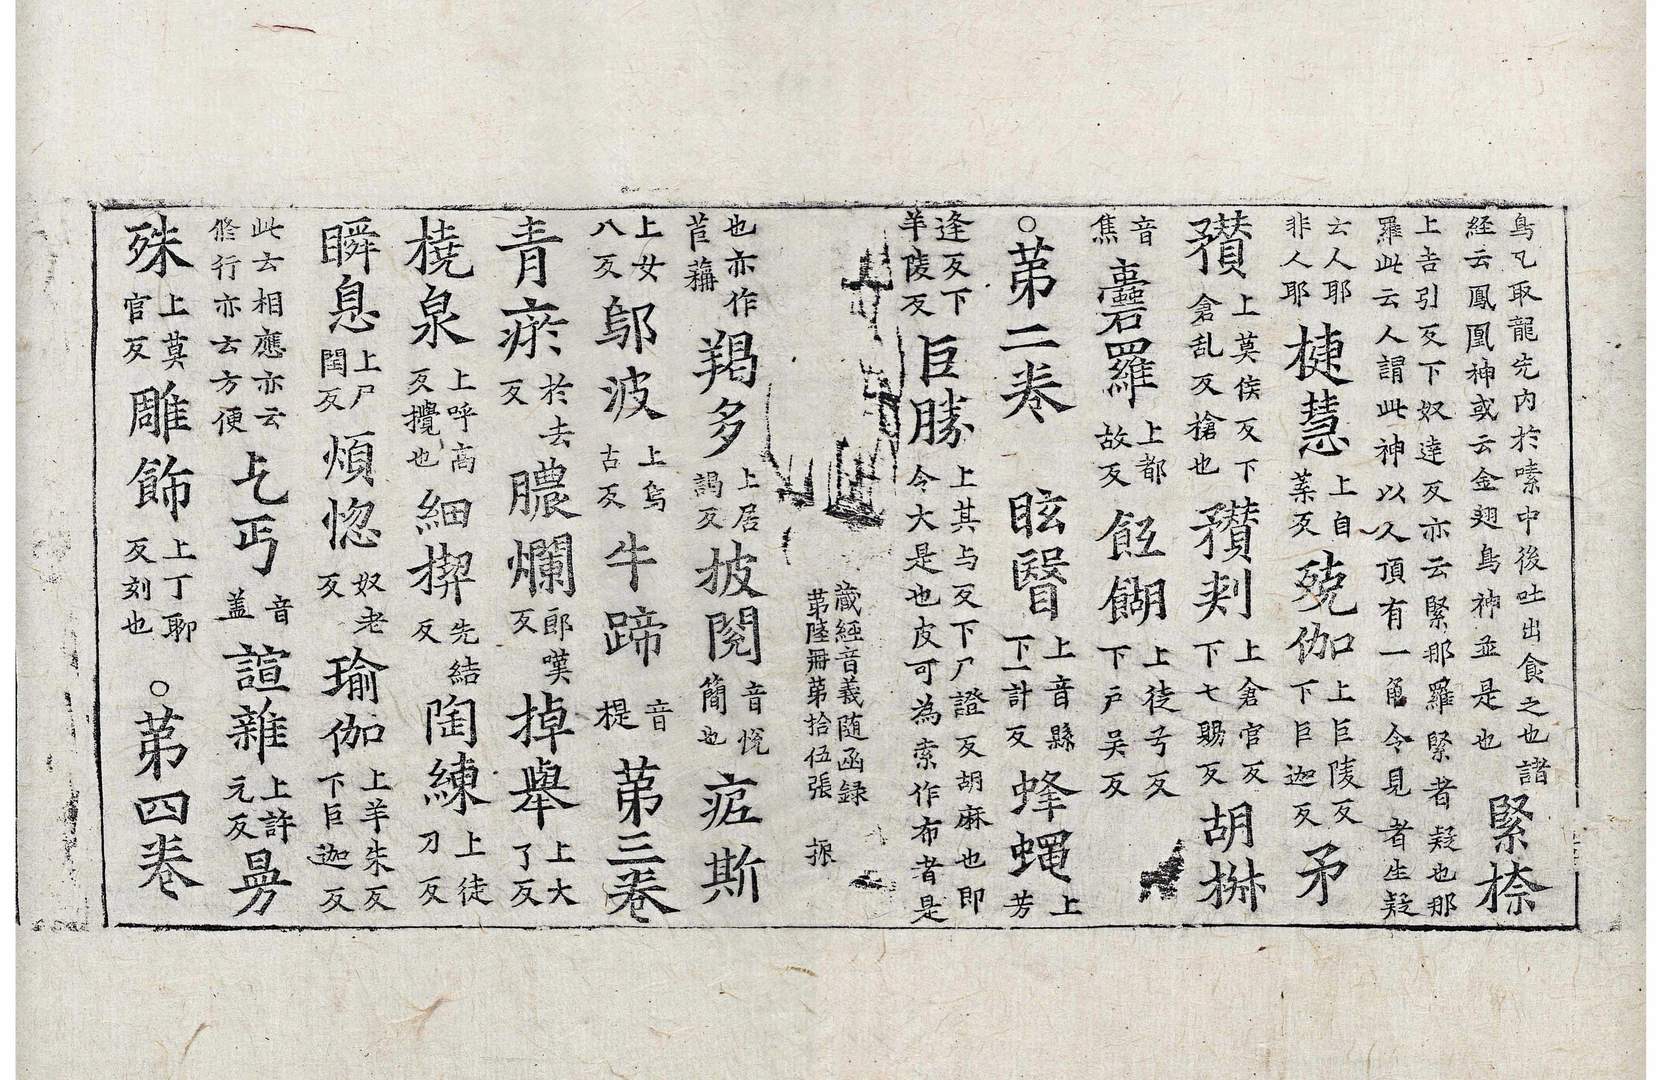 鳥凡取龍先内於嗉中後吐出食之也諸經云鳳凰神或云金翅鳥神並是也緊捺
上吉引反下奴達反亦云緊那羅緊者疑也那羅此云人謂此神以久頂有一角令見者生疑
云人耶非人耶 揵慧上自葉反 殑伽上巨陵反下巨迦反 矛
穳上莫侯反下倉乱反槍也 穳刾上倉官反下七賜反 胡
音焦 羅上都故反 餬上徒兮反下户吴反
○苐二卷 眩瞖上音縣下一計反 蜂蝿上芳
逢反下羊陵反 巨勝上其与反下尸證反胡麻也即令大是也皮可為索作布者是
藏經音義随函録
苐陸冊苐拾伍張 振
也亦作苢蘛 羯多上居謁反 披閲音悦簡也 疷斯
上女八反 鄔波上烏古反 牛蹄音提 苐三卷
青瘀於去反 膿爛郎嘆反 掉舉上大了反
橈泉上呼高反攪也 細揳先結反 陶練上徒刀反
瞬息上尸閏反 煩惚奴老反 瑜伽上羊朱反下巨迦反
此云相應亦云修行亦云方便 乞丐音盖 諠雜上許元反
殊上莫官反 雕飾上丁聊反刻也 ○苐四卷